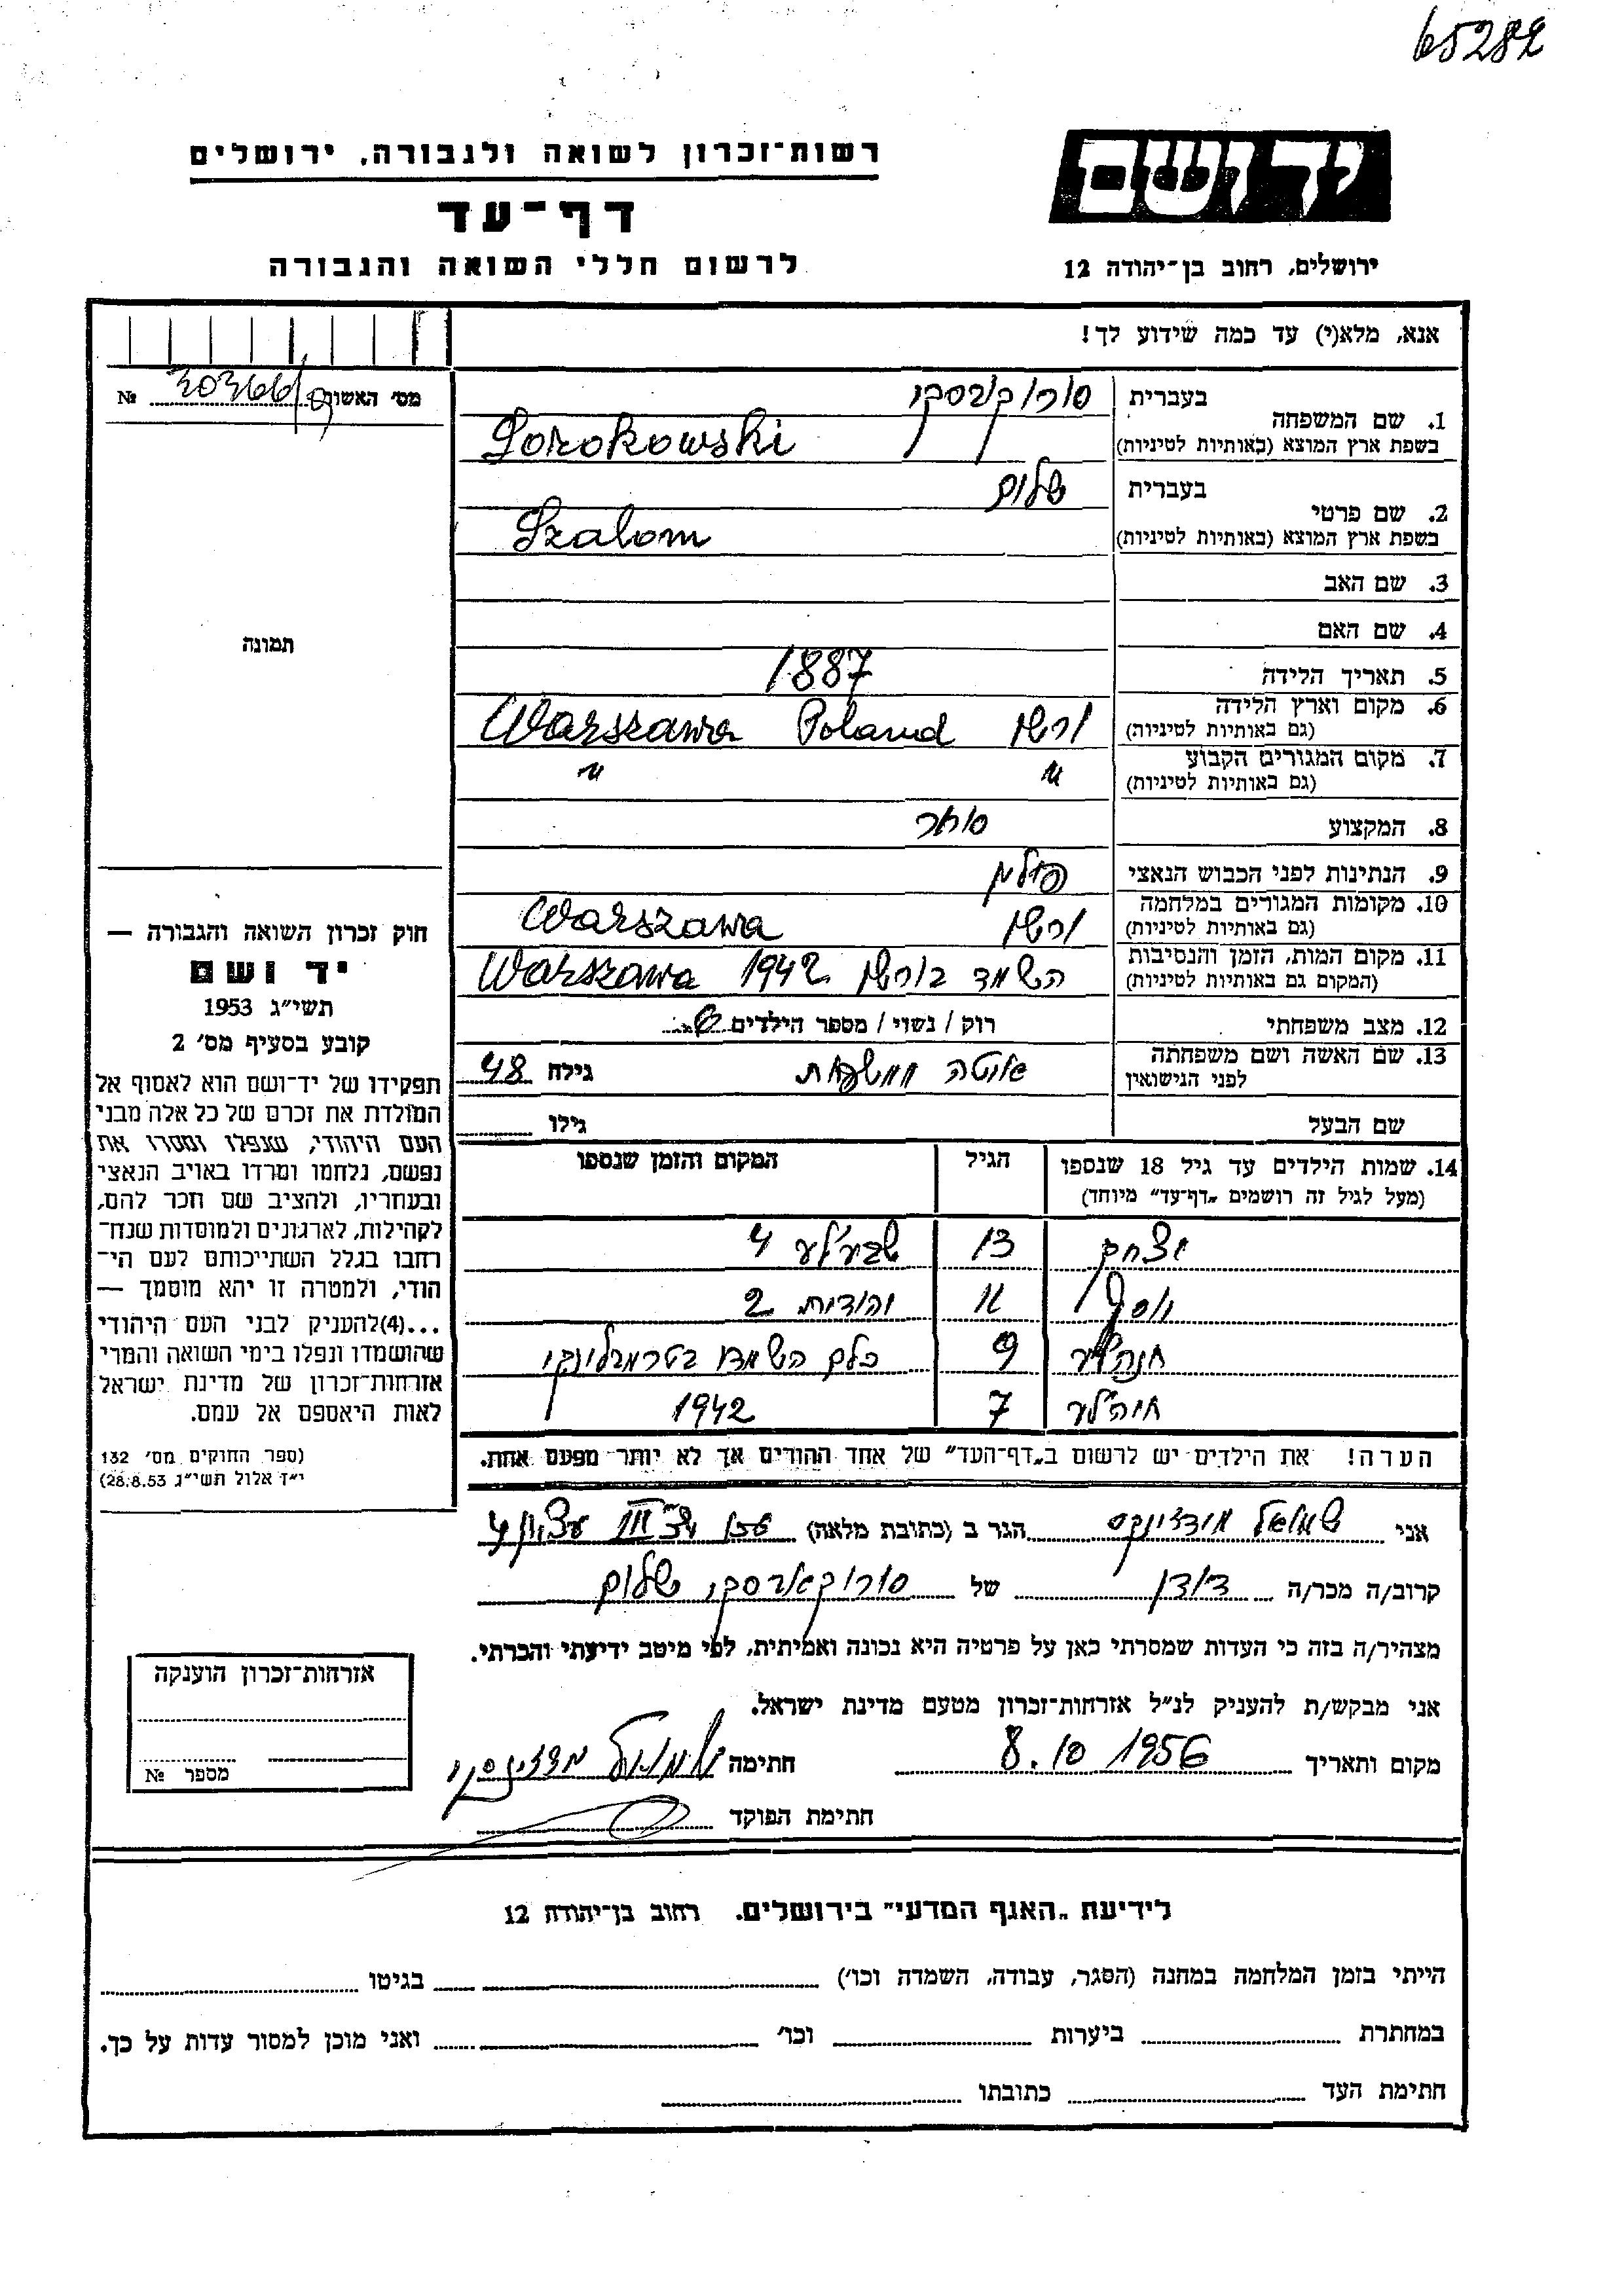 65282
יד ושם
ירושלים, רחוב בן־יהודה 12
רשות־זכרון לשואה ולגבורה, ירושלים
דף־עד
לרשום חללי השואה והגבורה
אנא, מלא(י) עד כמה שידוע לך!
מס' האשור № 
1. שם המשפחה בעברית סורוקובסקי
בשפת ארץ המוצא (באותיות לטיניות) Sorokowski
2. שם פרטי בעברית שלום
בשפת ארץ המוצא (באותיות לטיניות) Szalom
3. שם האב
4. שם האם
5. תאריך הלידה 1887
6. מקום וארץ הלידה (גם באותיות לטיניות) ורשן Warszawa Poland
7. מקום המגורים הקבוע (גם באותיות לטיניות) " "
8. המקצוע סוחר
9. הנתינות לפני הכבוש הנאצי פולין
10. מקומות המגורים במלחמה (גם באותיות לטיניות) ורשן Warszawa
11. מקום המות, הזמן והנסיבות (המקום גם באותיות לטיניות) השמד בורשן 1942 Warszawa
12. מצב משפחתי רוק / נשוי / מספר הילדים
13. שם האשה ושם משפחתה לפני הנישואין גילה 48
שם הבעל גילו
14. שמות הילדים עד גיל 18 שנספו
(מעל לגיל זה רושמים „דף־עד" מיוחד)
הגיל
המקום והזמן שנספו
יצחק 13 4
יוסף 11 יהודית 2
חנה'לע 9 כלם השמדו בטרמבלינקי
חוה'לע 7 1942
הערה! את הילדים יש לרשום ב„דף־העד" של אחד ההורים אך לא יותר מפעם אחת.
תמונה
חוק זכרון השואה והגבורה —
יד ושם
תשי"ג 1953
קובע בסעיף מס' 2
תפקידו של יד־ושם הוא לאסוף אל
המולדת את זכרם של כל אלה מבני
העם היהודי, שנפלו ומסרו את
נפשם, נלחמו ומרדו באויב הנאצי
ובעוזריו, ולהציב שם וזכר להם,
לקהילות, לארגונים ולמוסדות שנח־
רבו בגלל השתייכותם לעם הי־
הודי, ולמטרה זו יהא מוסמך —
...(4) להעניק לבני העם היהודי
שהושמדו ונפלו בימי השואה והמרי
אזרחות־זכרון של מדינת ישראל
לאות היאספם אל עמם.
(ספר החוקים מס' 132
י"ד אלול תשי"ג 28.8.53)
אני שמואל הגר ב (כתובת מלאה)
קרוב/ה מכר/ה דודן של סורוקאווסקי שלום
מצהיר/ה בזה כי העדות שמסרתי כאן על פרטיה היא נכונה ואמיתית, לפי מיטב ידיעתי והכרתי.
אני מבקש/ת להעניק לנ"ל אזרחות־זכרון מטעם מדינת ישראל.
מקום ותאריך 8.10 1956 חתימה שמואל
חתימת הפוקד
אזרחות־זכרון הוענקה
מספר №
לידיעת „האגף המדעי" בירושלים, רחוב בן־יהודה 12
הייתי בזמן המלחמה במחנה (הסגר, עבודה, השמדה וכו') בגיטו
במחתרת ביערות וכו' ואני מוכן למסור עדות על כך.
חתימת העד כתובתו